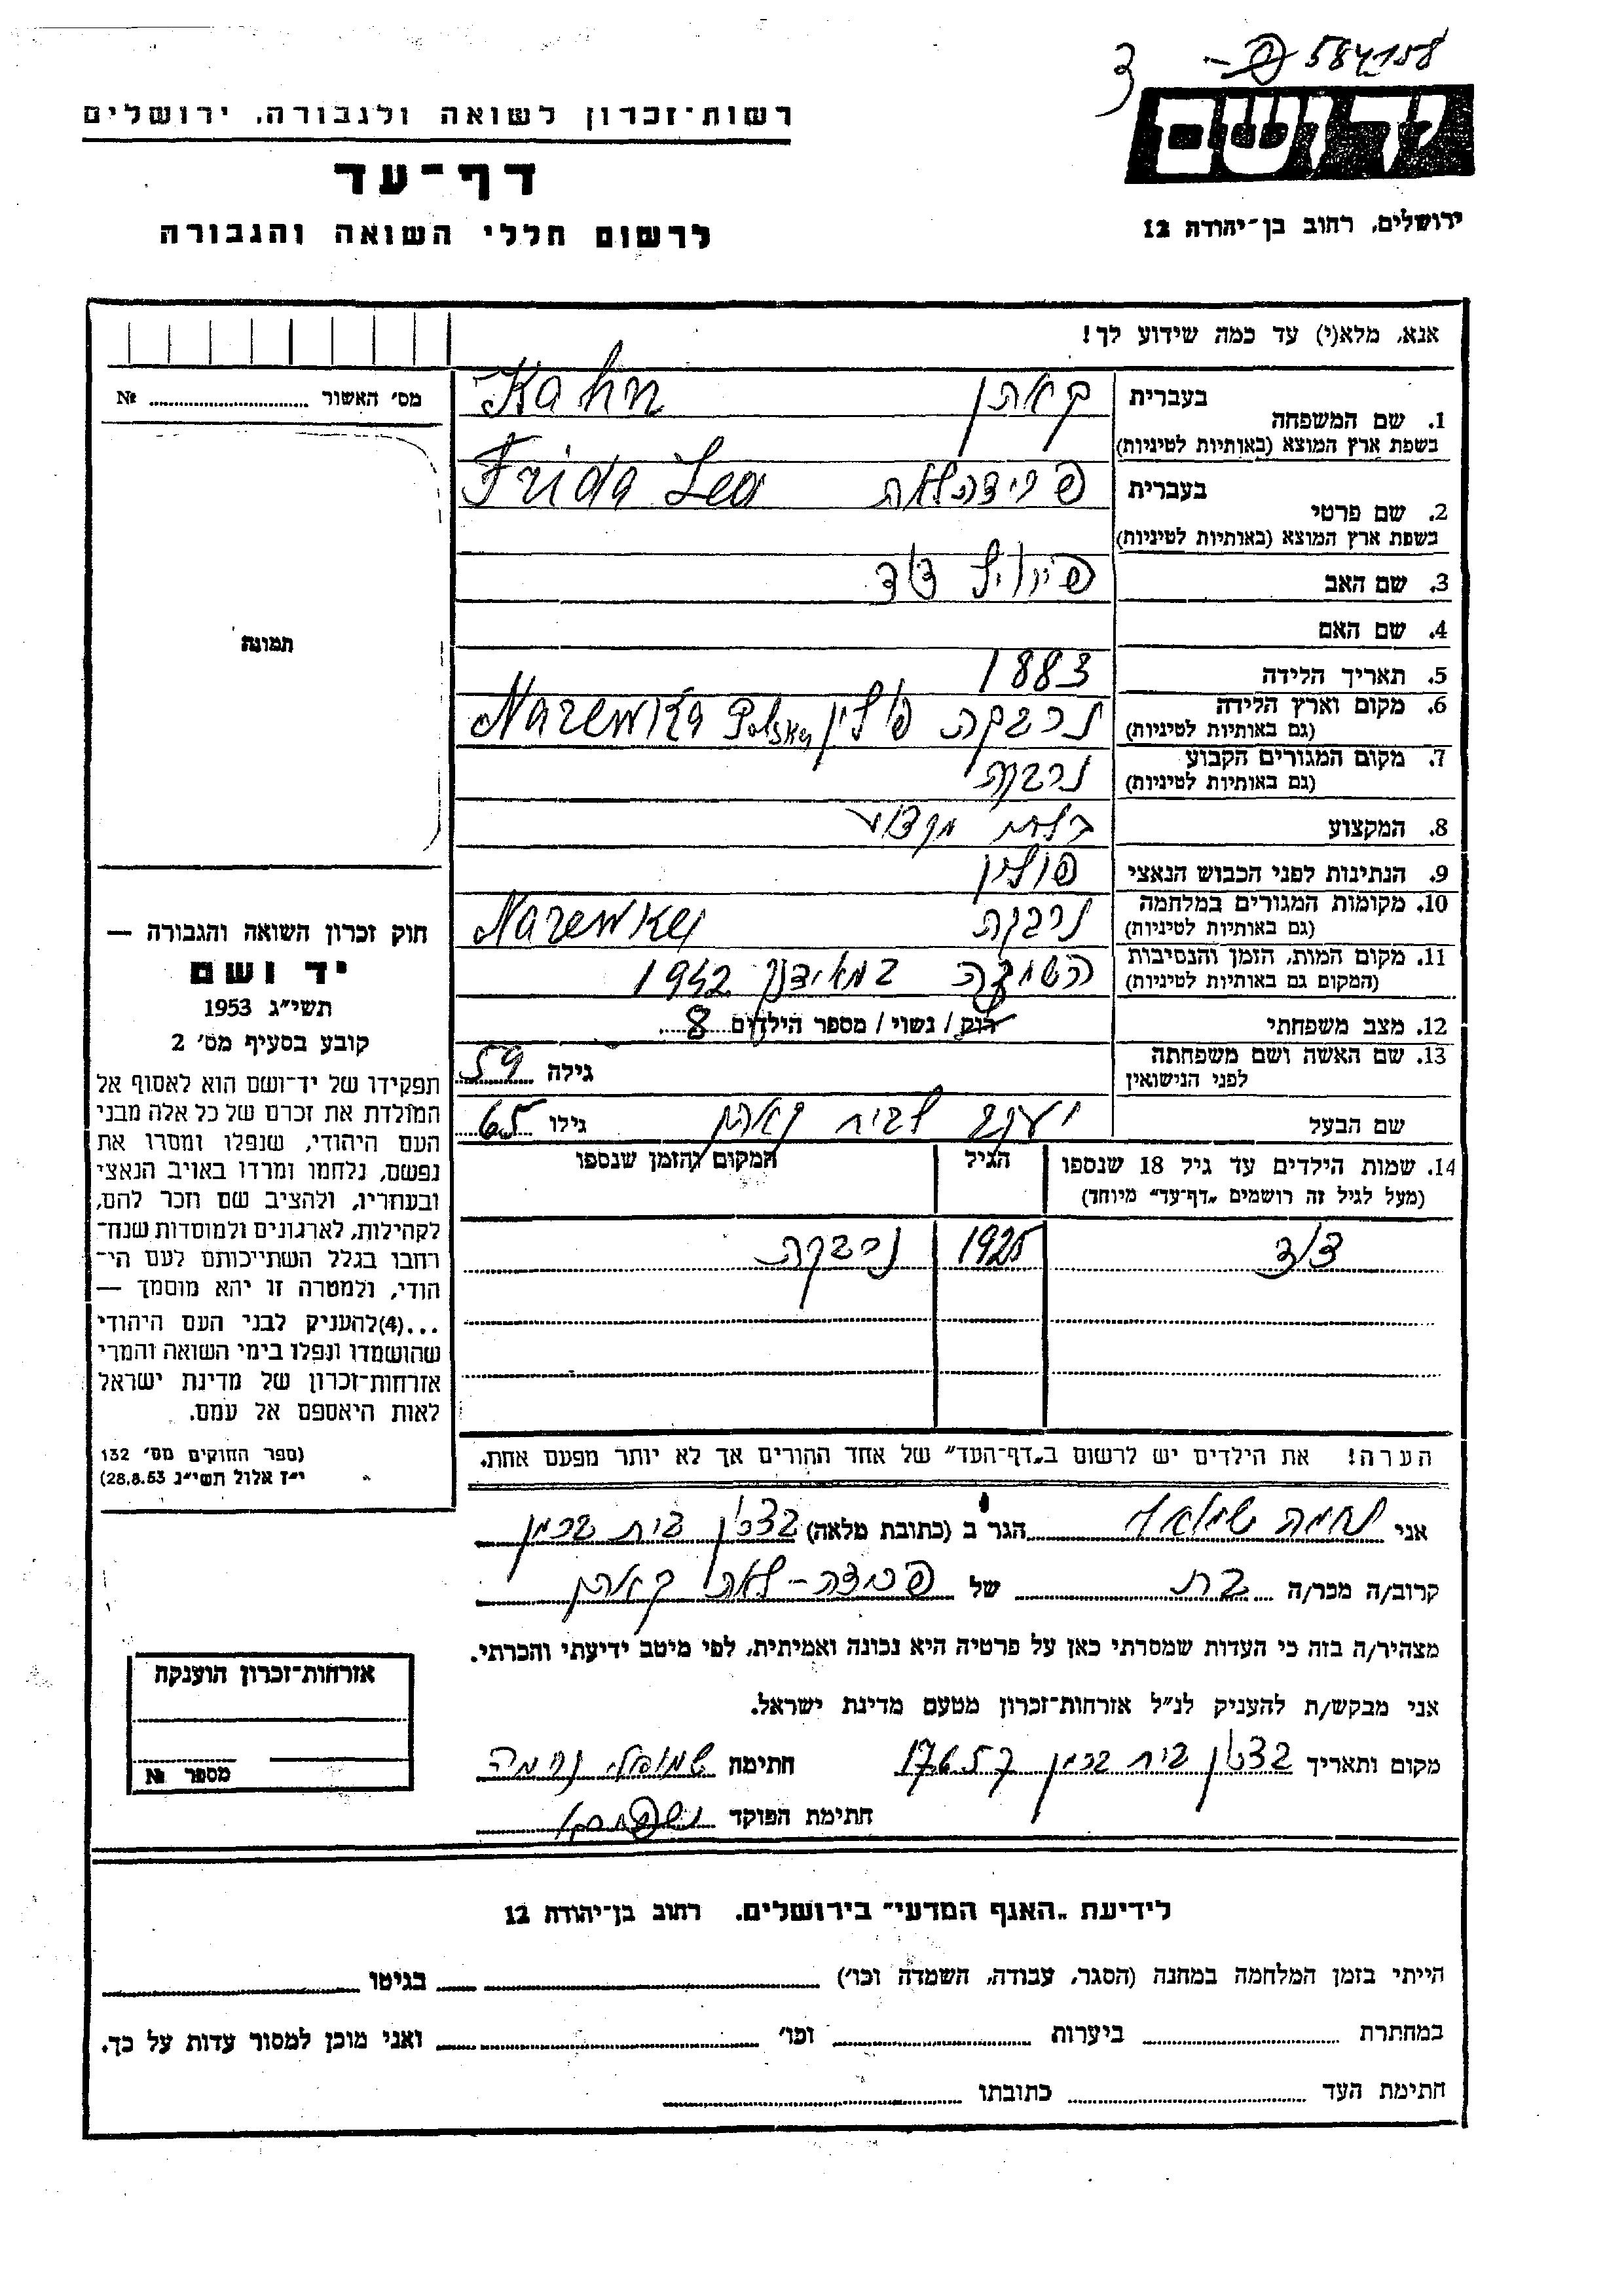 584158
ד
יד ושם
ירושלים, רחוב בן-יהודה 12
רשות-זכרון לשואה ולגבורה, ירושלים
דף-עד
לרשום חללי השואה והגבורה
אנא, מלא(י) עד כמה שידוע לך!
1. שם המשפחה בעברית קאהן Kahn
בשפת ארץ המוצא (באותיות לטיניות)
2. שם פרטי בעברית פרידה לאה Frida Lea
בשפת ארץ המוצא (באותיות לטיניות)
3. שם האב דוד
4. שם האם
5. תאריך הלידה 1883
6. מקום וארץ הלידה נרבקה פולין Naremka Polska
(גם באותיות לטיניות)
7. מקום המגורים הקבוע נרבקה
(גם באותיות לטיניות)
8. המקצוע בלתי מקצועי
9. הנתינות לפני הכבוש הנאצי פולין
10. מקומות המגורים במלחמה נרבקה Naremka
(גם באותיות לטיניות)
11. מקום המות, הזמן והנסיבות הושמדה במאידנק 1942
(המקום גם באותיות לטיניות)
12. מצב משפחתי רווק / נשוי / מספר הילדים 8
13. שם האשה ושם משפחתה גילה 59
לפני הנישואין
שם הבעל יעקב קאהן גילו 65
14. שמות הילדים עד גיל 18 שנספו הגיל המקום והזמן שנספו
(מעל לגיל זה רושמים "דף-עד" מיוחד)
דוד 1925 נרבקה
הערה! את הילדים יש לרשום ב"דף-העד" של אחד ההורים אך לא יותר מפעם אחת.
אני נחמה הגר ב (כתובת מלאה) בצרון בית
קרוב/ה מכר/ה בת של פרידה-לאה קאהן
מצהיר/ה בזה כי העדות שמסרתי כאן על פרטיה היא נכונה ואמיתית, לפי מיטב ידיעתי והכרתי.
אני מבקש/ת להעניק לנ"ל אזרחות-זכרון מטעם מדינת ישראל.
מקום ותאריך בצרון בית 17.6.57 חתימה נחמה
חתימת הפוקד
מס' האשור №
תמונה
חוק זכרון השואה והגבורה —
יד ושם
תשי"ג 1953
קובע בסעיף מס' 2
תפקידו של יד-ושם הוא לאסוף אל
המולדת את זכרם של כל אלה מבני
העם היהודי, שנפלו ומסרו את
נפשם, נלחמו ומרדו באויב הנאצי
ובעוזריו, ולהציב שם וזכר להם,
לקהילות, לארגונים ולמוסדות שנח-
רחבו בגלל השתייכותם לעם הי-
הודי, ולמטרה זו יהא מוסמך —
...(4)להעניק לבני העם היהודי
שהושמדו ונפלו בימי השואה והמרי
אזרחות-זכרון של מדינת ישראל
לאות היאספם אל עמם.
(ספר החוקים מס' 132
י"ז אלול תשי"ג 28.8.53)
אזרחות-זכרון הוענקה
מספר №
לידיעת "האגף המדעי" בירושלים. רחוב בן-יהודה 12
הייתי בזמן המלחמה במחנה (הסגר, עבודה, השמדה וכו') בגיטו
במחתרת ביערות וכו' ואני מוכן למסור עדות על כך.
חתימת העד כתובתו